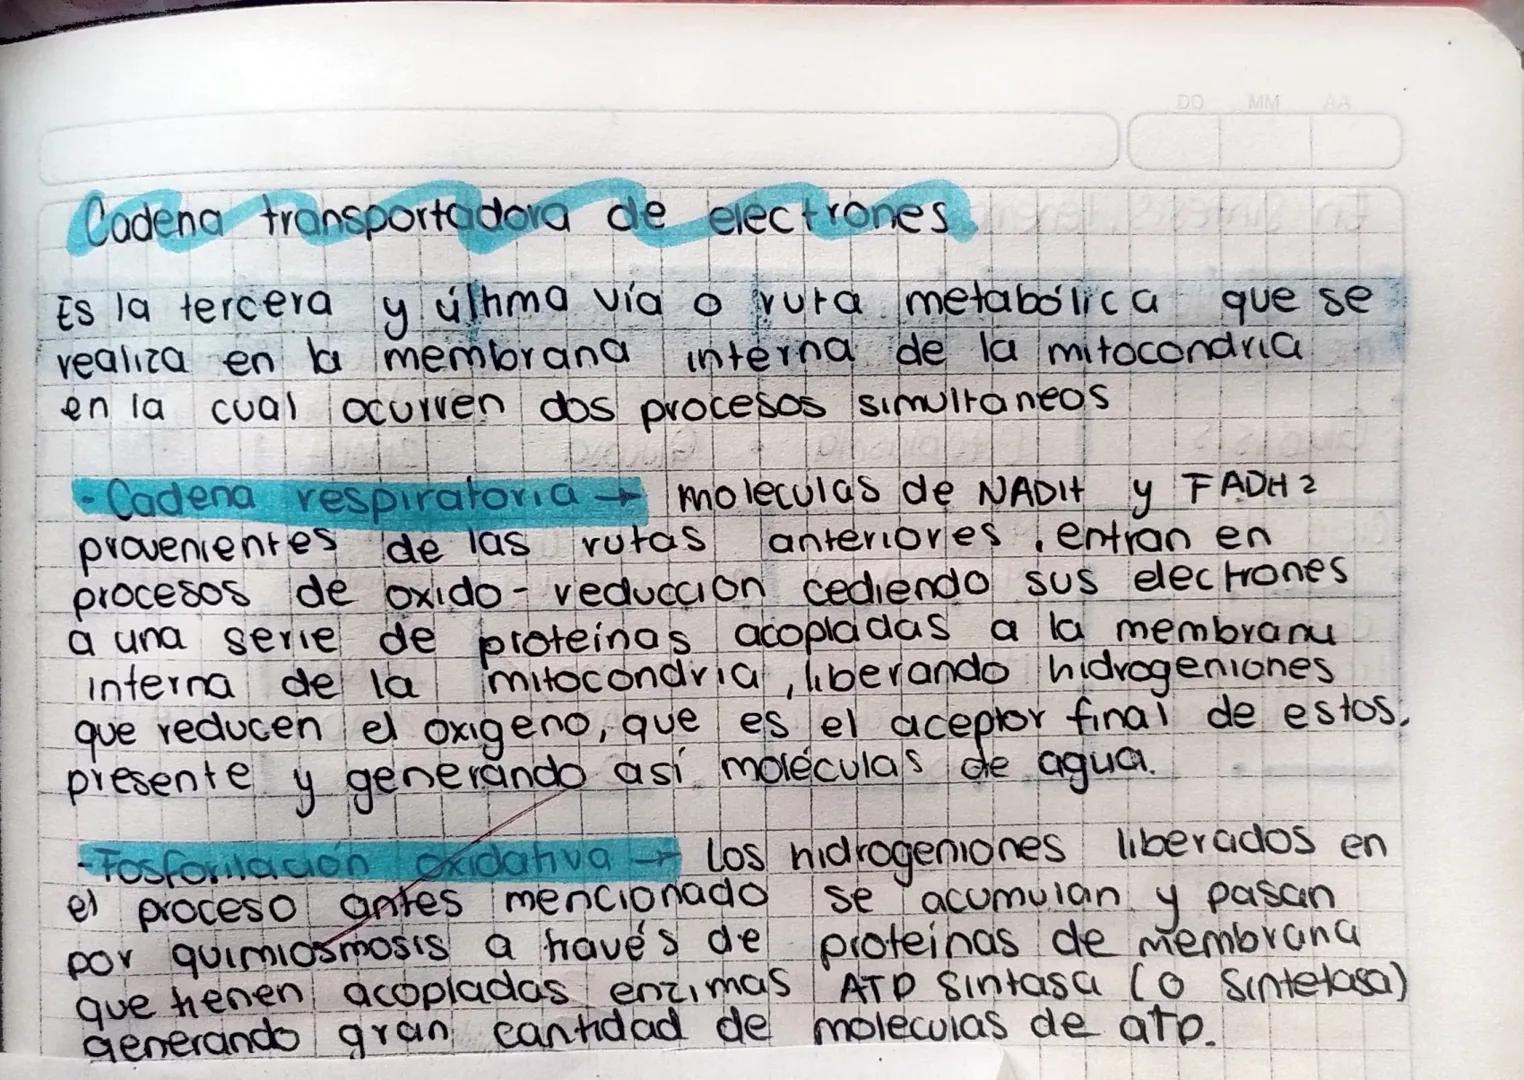 DD MM AA
Cadena transportadora de electrones.
Es la tercera y última vía o ruta metabólica que se
realiza en la membrana interna de la mitocondria
en la cual ocurren dos procesos simultaneos
- Cadena respiratoria → moleculas de NADH y FADH2
provenientes de las rutas anteriores, entran en
procesos de oxido-reducción cediendo sus electrones
a una serie de proteínas acopladas a la membrana
interna de la mitocondria, liberando hidrogeniones
que reducen el oxigeno, que es el aceptor final de estos,
presente y generando así moléculas de agua.
- Fosforilación oxidativa → Los hidrogeniones liberados en
el proceso antes mencionado se acumulan y pasan
por quimiosmosis a través de proteínas de membrana
que tienen acopladas enzimas ATP Sintasa (o Sintetasa)
generando gran cantidad de moleculas de ATP.